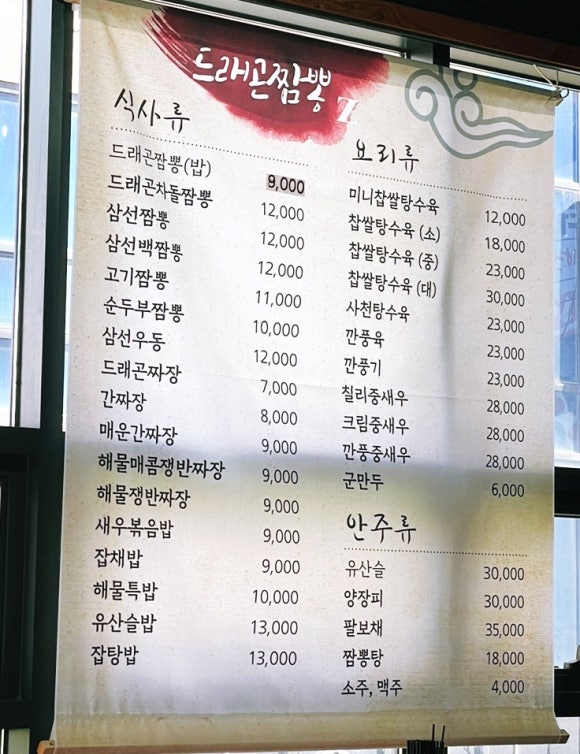 드래곤짬뽕 Z
식사류
드래곤짬뽕(밥) 9,000
드래곤차돌짬뽕 12,000
삼선짬뽕 12,000
삼선백짬뽕 12,000
고기짬뽕 11,000
순두부짬뽕 10,000
삼선우동 12,000
드래곤짜장 7,000
간짜장 8,000
매운간짜장 9,000
해물매콤쟁반짜장 9,000
해물쟁반짜장 9,000
새우볶음밥 9,000
잡채밥 9,000
해물특밥 10,000
유산슬밥 13,000
잡탕밥 13,000
요리류
미니찹쌀탕수육 12,000
찹쌀탕수육 (소) 18,000
찹쌀탕수육 (중) 23,000
찹쌀탕수육 (대) 30,000
사천탕수육 23,000
깐풍육 23,000
깐풍기 23,000
칠리중새우 28,000
크림중새우 28,000
깐풍중새우 28,000
군만두 6,000
안주류
유산슬 30,000
양장피 30,000
팔보채 35,000
짬뽕탕 18,000
소주, 맥주 4,000